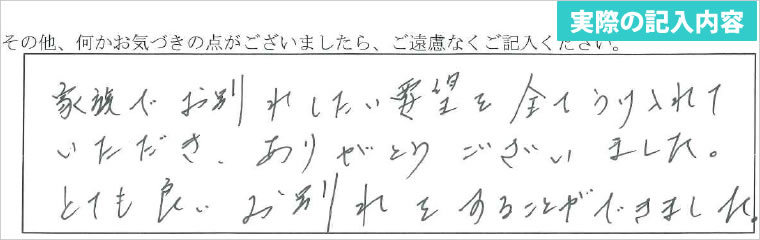 実際の記入内容
その他、何かお気づきの点がございましたら、ご遠慮なくご記入ください。
家族でお別れしたい要望を全てうけ入れて
いただき、ありがとうございました。
とても良いお別れをすることができました。